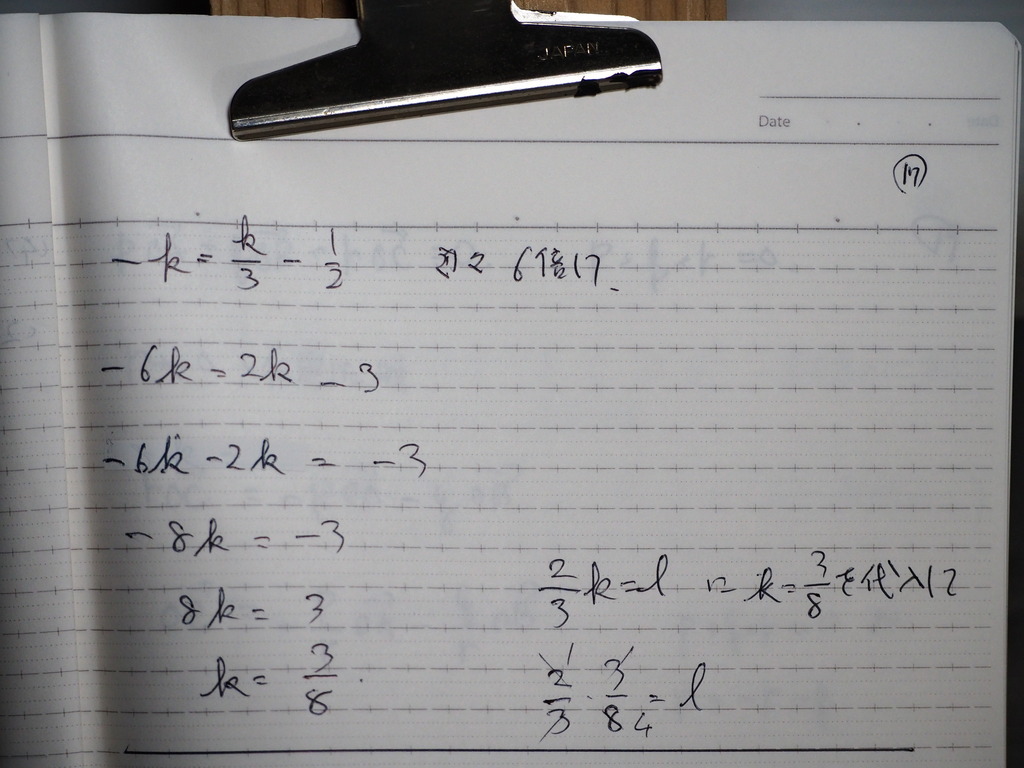 JAPAN
Date
-k = k/3 - 1/2 6倍して
-6k = 2k - 3
-6k - 2k = -3
-8k = -3
8k = 3
k = 3/8.
2/3 k = l に k = 3/8 を代入して
2/3 · 3/8 4 = l